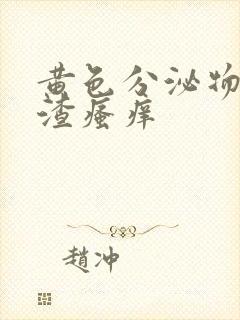 黄色分泌物
渣瘙痒
趙冲